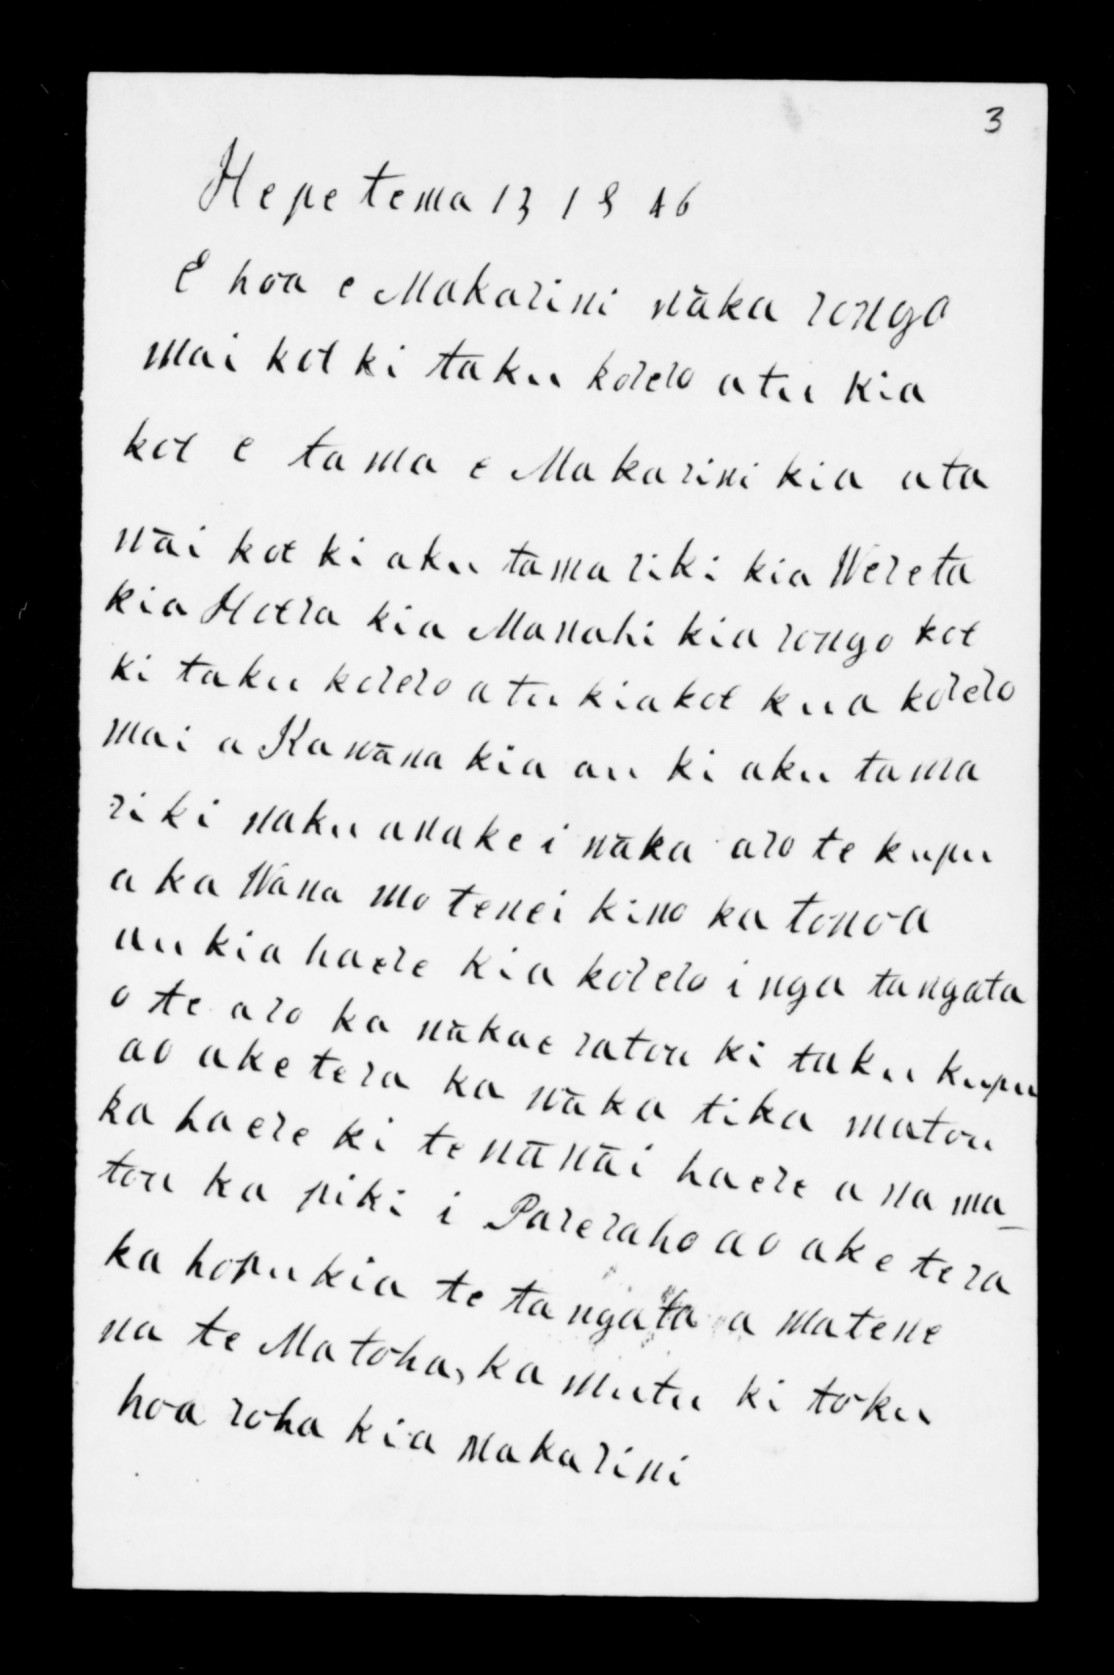 3
Hepetema 13 1846
E hoa e Makarini wāka rongo
mai koe ki taku korero atu kia
koe e tama e Makarini kia ata
wāi koe ki aku tamariki kia Wereta
kia Hoera kia Manahi kia rongo koe
ki taku korero atu kiakoe kua korero
mai a Kawāna kia au ki aku tama
riki naku anake i wāka aro te kupu
a ka Wana mo tenei kino ka tonoa
au kia haere kia korero i nga tangata
o te aro ka wākae ratou ki taku kupu
ao ake te ra ka wāka tika matou
ka haere ki te wāwāi haere ana ma_
tou ka piki i Pareraho ao ake te ra
ka hopukia te tangata a Matene
na te Matoha, ka mutu ki tōku
hoa roha kia Makarini